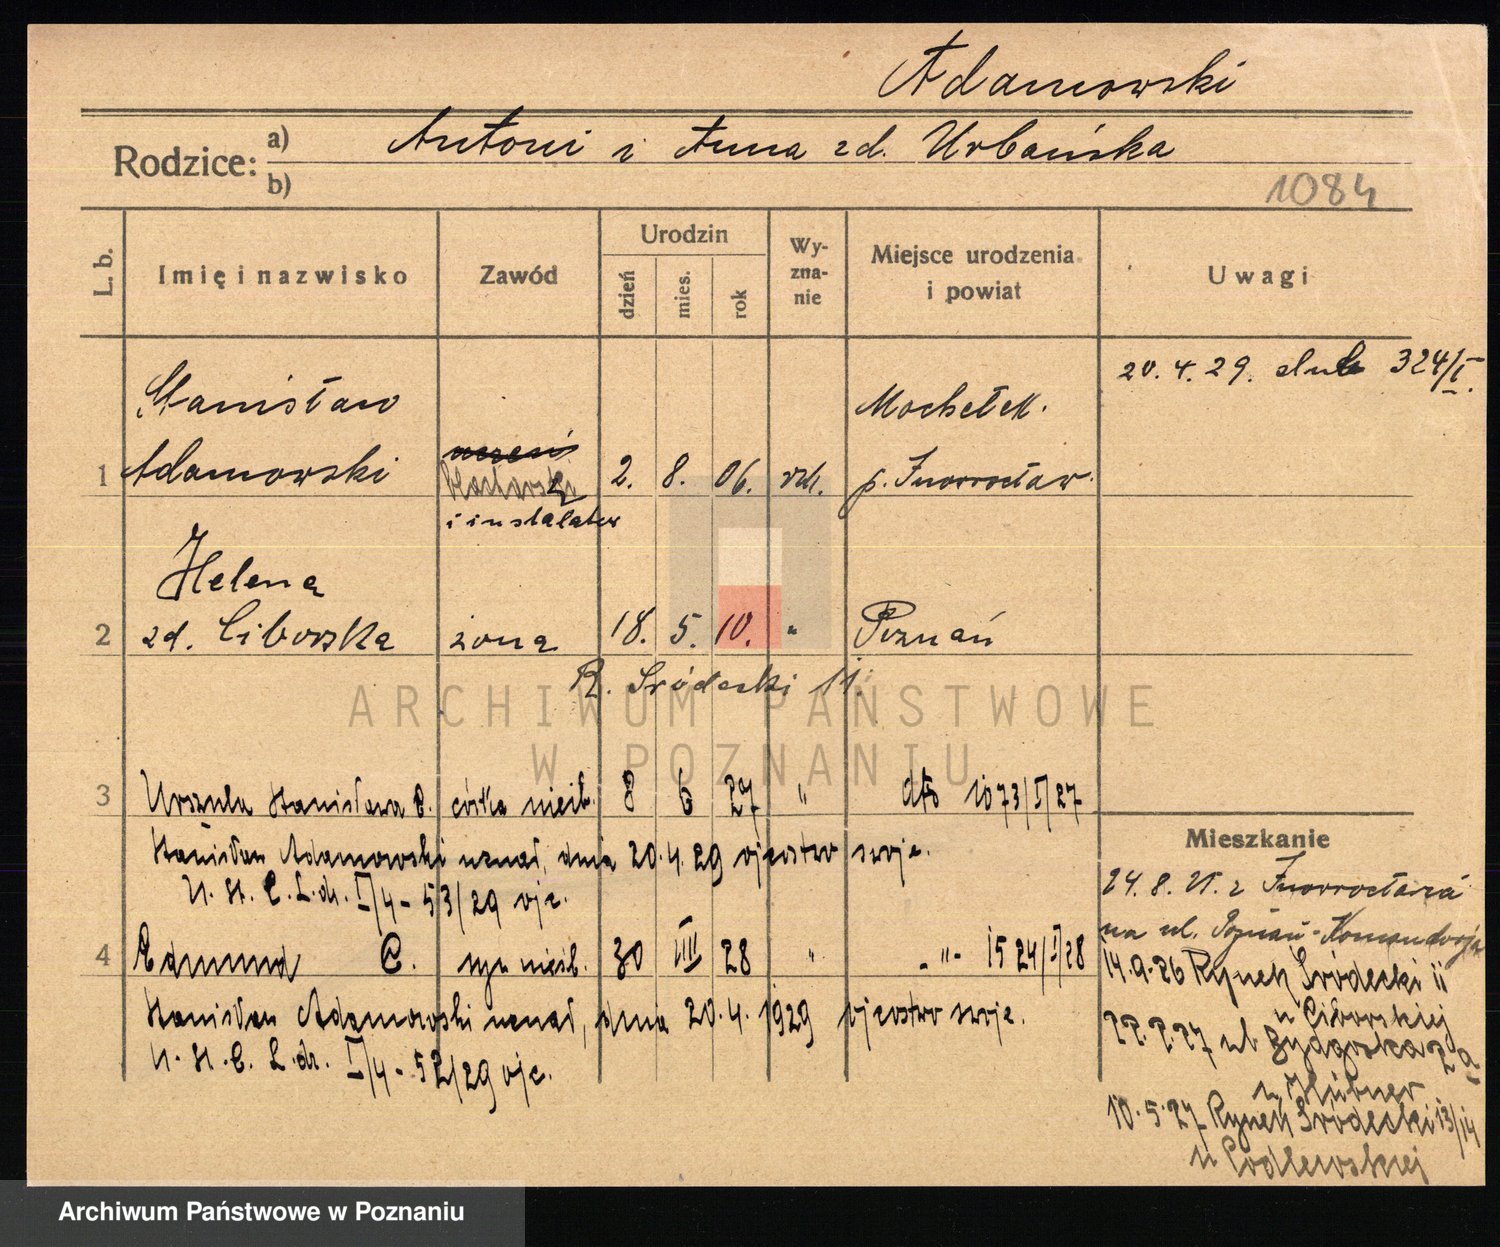 Adamowski
Rodzice: a) Antoni i Anna zd. Urbańska
b)
1084
L. b.
Imię i nazwisko
Zawód
Urodzin
dzień
mies.
rok
Wy-
zna-
nie
Miejsce urodzenia
i powiat
Uwagi
20. 4. 29. ślub 324/I.
Stanisław
Mochełek.
1 Adamowski uczeń blacharski 2. 8. 06. rzk. p. Inowrocław
i instalator
Helena
2 zd. Ciborska żona 18. 5. 10. " Poznań
R. Śródecki 11.
ARCHIWUM PAŃSTWOWE
W POZNANIU
3 Urszula Stanisława C. córka nieśl. 8 6 27 " dto 1073/I/27
Stanisław Adamowski uznał, dnia 20.4.29 ojcostwo swoje.
U. S. C. L. dz. I/4 - 53/29 ojc.
4 Edmund C. syn nieśl. 30 VIII 28 " - " - 1524/I/28
Stanisław Adamowski uznał, dnia 20.4.1929 ojcostwo swoje.
U. S. C. L. dz. I/4 - 52/29 ojc.
Mieszkanie
24. 8. 21. z Inowrocławia
na ul. Poznań-Komandorja
14.9.26 Rynek Śródecki 11
u Ciborskiej
ul. Bydgoska 2a
u Hübner
10.5.27 Rynek Śródecki 13/14
u Podlewskiej
Archiwum Państwowe w Poznaniu